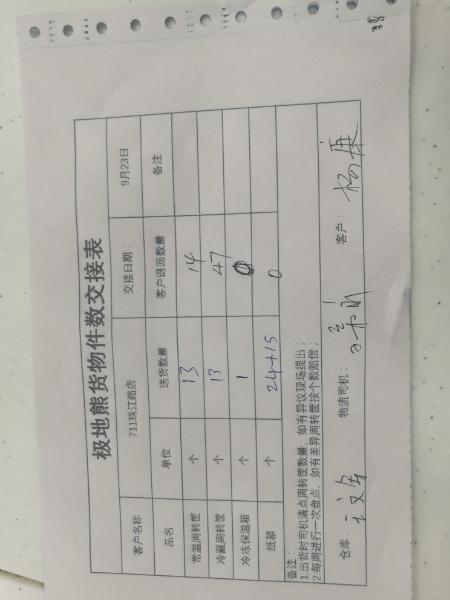 极地熊货物件数交接表
客户名称 711珠江路店 交接日期： 9月23日
品名 单位 送货数量 客户退回数量 备注
常温周转筐 个 13 14
冷藏周转筐 个 13 47
冷冻保温箱 个 1 0
纸箱 个 24+15 0
备注：
1.出货时司机清点周转筐数量，如有异议现场提出；
2.每周进行一次盘点，如有差异周转筐按个数赔偿；
仓库： 物流司机： 客户：
38